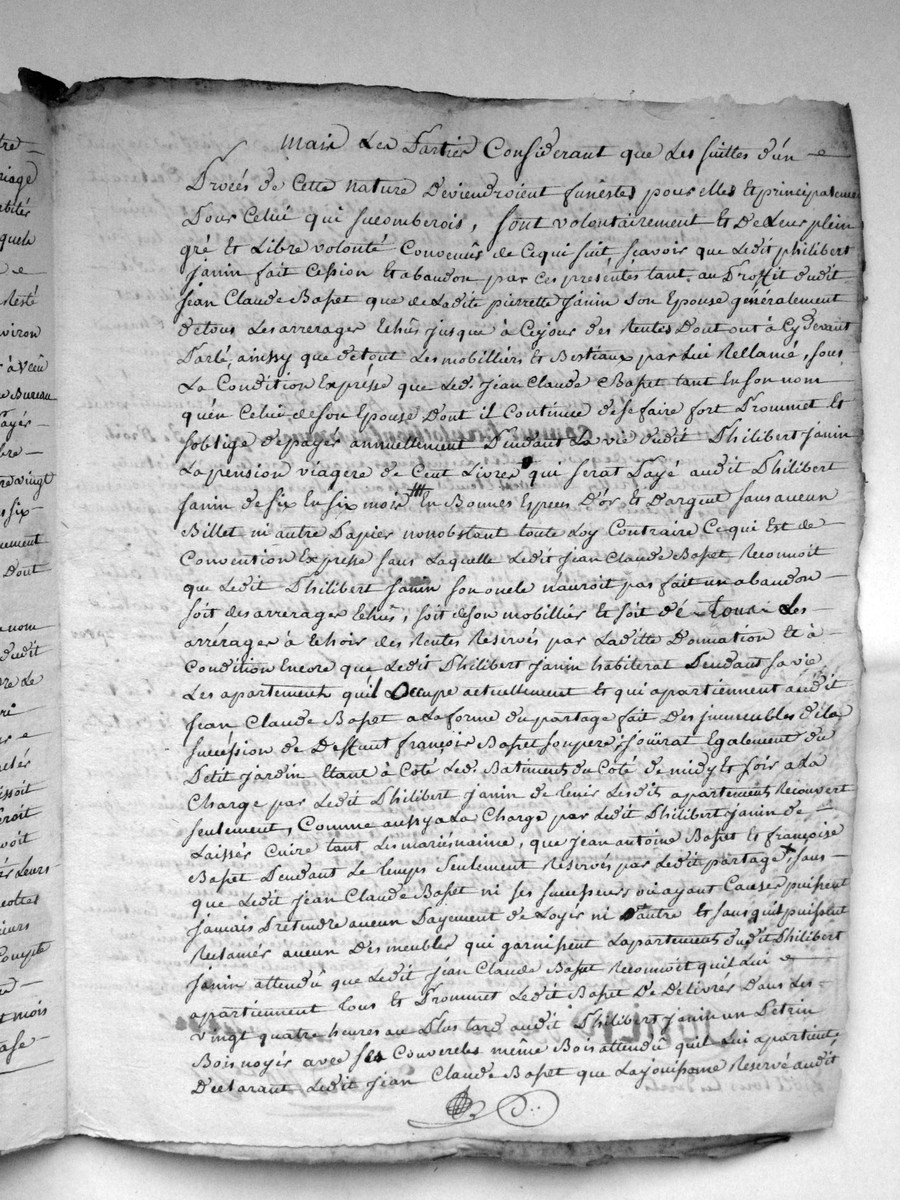 Mais Les Parties Considerant que Les suittes d'un
Procés de Cette nature Deviendroient funêstes pour elles Et principalement
Pour Celuÿ qui sucomberois, sont volontairement Et De Leur plein
gré Et Libre volonté Convenûs de Cequi suit scavoir que Ledit philibert
Janin fait Cession Et abandon par Ces presentes tant au Proffit dudit
Jean Claude Basset que de Ladite pierrette Janin Son Epouse généralement
De tous Les arrerages Echûs jusque à Cejour des Rentes Dont ont à Cÿ devant
Parlé, ainssy que de tout Les mobilliers Et Bestiaux par Lui Reclamé, sous
La Condition Expresse que Led. Jean Claude Basset tant En son nom
qu'en Celui de son Epouse Dont il Continue de se faire fort Prommet Et
soblige De payér annuellement Pendant La vie dudit Philibert Janin
La pension viagere de Cent Livres qui serat Payé audit Philibert
Janin de six En six mois En Bonnes Especes D'or Et D'argent sans aucun
Billet ni autre Papier nonobstant toute Loy Contraire Cequi Est de
Convention Expresse sans Laquelle Ledit Jean Claude Basset Reconnoit
que Ledit Philibert Janin son oncle n'auroit pas fait un abandon
soit des arrerages Echûs, soit de son mobillier Et soit dé Tous Les
arrérages à Echoir des Rentes Réservés par Laditte Donnation Et à
Condition Encore que Ledit Philibert Janin habiterat Pendant sa vie
Les apartements qu'il Occupe actuellement Et qui apartiennent audit
Jean Claude Basset a La forme du partage fait Des immeubles de la
succéssion de Deffunt françois Basset son pere, joüirat Egalement du
Petit jardin Etant à Coté Led. Batiments du Coté de midy Et soir a La
Charge par Ledit Philibert Janin de tenir Lesdits apartements Recouvert
seulement, Comme aussy a La Charge par Ledit Philibert Janin de
Laissér Cuire tant Les mariés naime, que Jean antoine Basset Et françoise
Basset Pendant Le temps seulement Reservés par Ledit partage, sans
que Ledit Jean Claude Basset ni ses successeurs où ayant Causes puissent
Jamais Pretendre aucun Payement de Loyer ni D'autre Et sans qu'il puissent
Reclamér aucun Des meubles qui garnissent L'apartements dudit Philibert
Janin attendû que Ledit Jean Claude Basset Reconnoit quil Lui
apartiennent tous Et Prommet Ledit Basset De Délivrér Dans Les
vingt quatre heures au Plus tard audit Philibert Janin un Petrin
Bois noyér avec ses Couvercles même Bois attendu quil Lui apartient,
Déclarant Ledit Jean Claude Basset que La jouissance Reservé audit